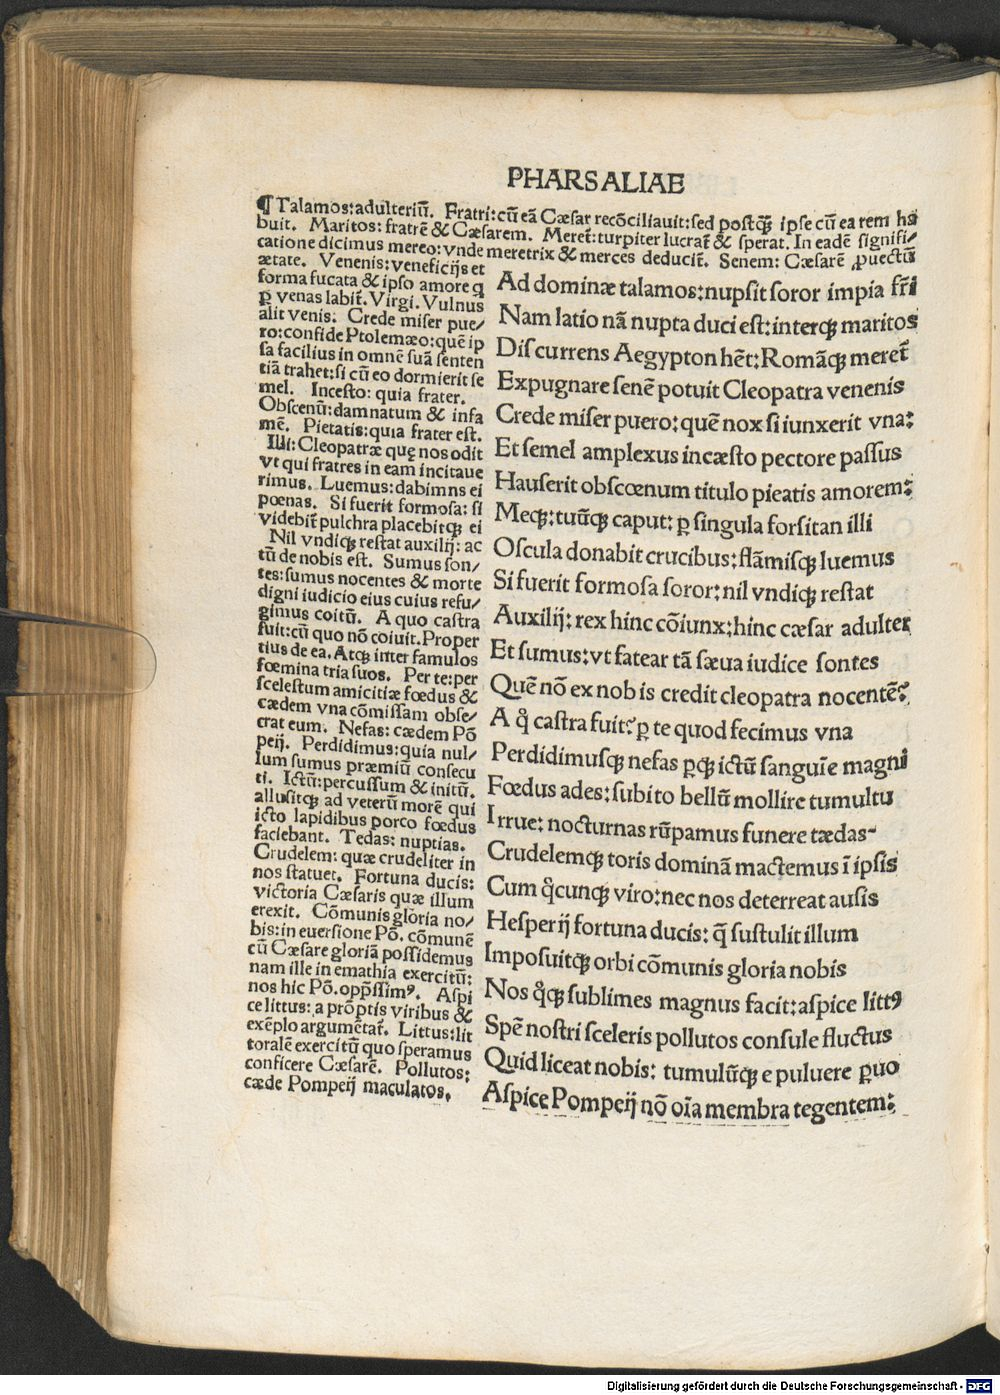 PHARSALIAE
¶ Talamos: adulteriū. Fratri: cū eā Cæsar recōciliauit: sed postqȝ ipse cū ea rem ha
buit. Maritos: fratrē & Cæsarem. Meret᷑: turpiter lucrat᷑ & sperat. In eadē signifi/
catione dicimus mereo: vnde meretrix & merces deducit᷑. Senem: Cæsarē ꝓuectū
ætate. Venenis: veneficijs et
forma fucata & ipso amore q
ꝑ venas labit᷑. Virgi. Vulnus
alit venis. Crede miser pue/
ro: confide Ptolemæo: quē ip
sa facilius in omnē suā senten
tiā trahet: si cū eo dormierit se
mel. Incesto: quia frater.
Obscenū: damnatum & infa
mē. Pietatis: quia frater est.
Illi: Cleopatræ quę nos odit
vt qui fratres in eam incitaue
rimus. Luemus: dabimns ei
pœnas. Si fuerit formosa: si
videbit᷑ pulchra placebitqȝ ei
Nil vndiqȝ restat auxilij: ac
tū de nobis est. Sumus son/
tes: sumus nocentes & morte
digni iudicio eius cuius refu/
gimus coitū. A quo castra
fuit: cū quo nō coiuit. Proper
tius de ea. Atqȝ inter famulos
fœmina tria suos. Per te: per
scelestum amicitiæ fœdus &
cædem vna cōmissam obse/
crat eum. Nefas: cædem Pō
peij. Perdidimus: quia nul/
lum sumus præmiū consecu
ti. Ictū: percussum & initū.
allusitqȝ ad veterū morē qui
icto lapidibus porco fœdus
faciebant. Tedas: nuptias.
Crudelem: quæ crudeliter in
nos statuet. Fortuna ducis:
victoria Cæsaris quæ illum
erexit. Cōmunis gloria no/
bis: in euersione Pō. cōmunē
cū Cæsare gloriā possidemus
nam ille in emathia exercitū:
nos hic Pō. opp̄ssimꝰ. Aspi
ce littus: a prōptis viribus &
exēplo argumētat᷑. Littus: lit
toralē exercitū quo speramus
conficere Cæsarē. Pollutos:
cæde Pompeij maculatos.
Ad dominæ talamos: nupsit soror impia fr̄i
Nam latio nā nupta duci est: interqȝ maritos
Discurrens Aegypton hēt: Romāqȝ meret᷑
Expugnare senē potuit Cleopatra venenis
Crede miser puero: quē nox si iunxerit vna:
Et semel amplexus incæsto pectore passus
Hauserit obscœnum titulo pieatis amorem:
Meqȝ: tuūqȝ caput: ꝑ singula forsitan illi
Oscula donabit crucibus: flāmisqȝ luemus
Si fuerit formosa soror: nil vndiqȝ restat
Auxilij: rex hinc cōiunx: hinc cæsar adulter
Et sumus: vt fatear tā sæua iudice sontes
Quē nō ex nobis credit cleopatra nocentē?
A q̊ castra fuit? ꝑ te quod fecimus vna
Perdidimusqȝ nefas ꝑqȝ ictū sanguīe magni
Fœdus ades: subito bellū mollire tumultu
Irrue: nocturnas rūpamus funere tædas
Crudelemqȝ toris dominā mactemus ī ipsis
Cum q̊cunqȝ viro: nec nos deterreat ausis
Hesperij fortuna ducis: q̄ sustulit illum
Imposuitqȝ orbi cōmunis gloria nobis
Nos q̊qȝ sublimes magnus facit: aspice littꝰ
Spē nostri sceleris pollutos consule fluctus
Quid liceat nobis: tumulūqȝ e puluere ꝑuo
Aspice Pompeij nō oīa membra tegentem:
Digitalisierung gefördert durch die Deutsche Forschungsgemeinschaft - DFG